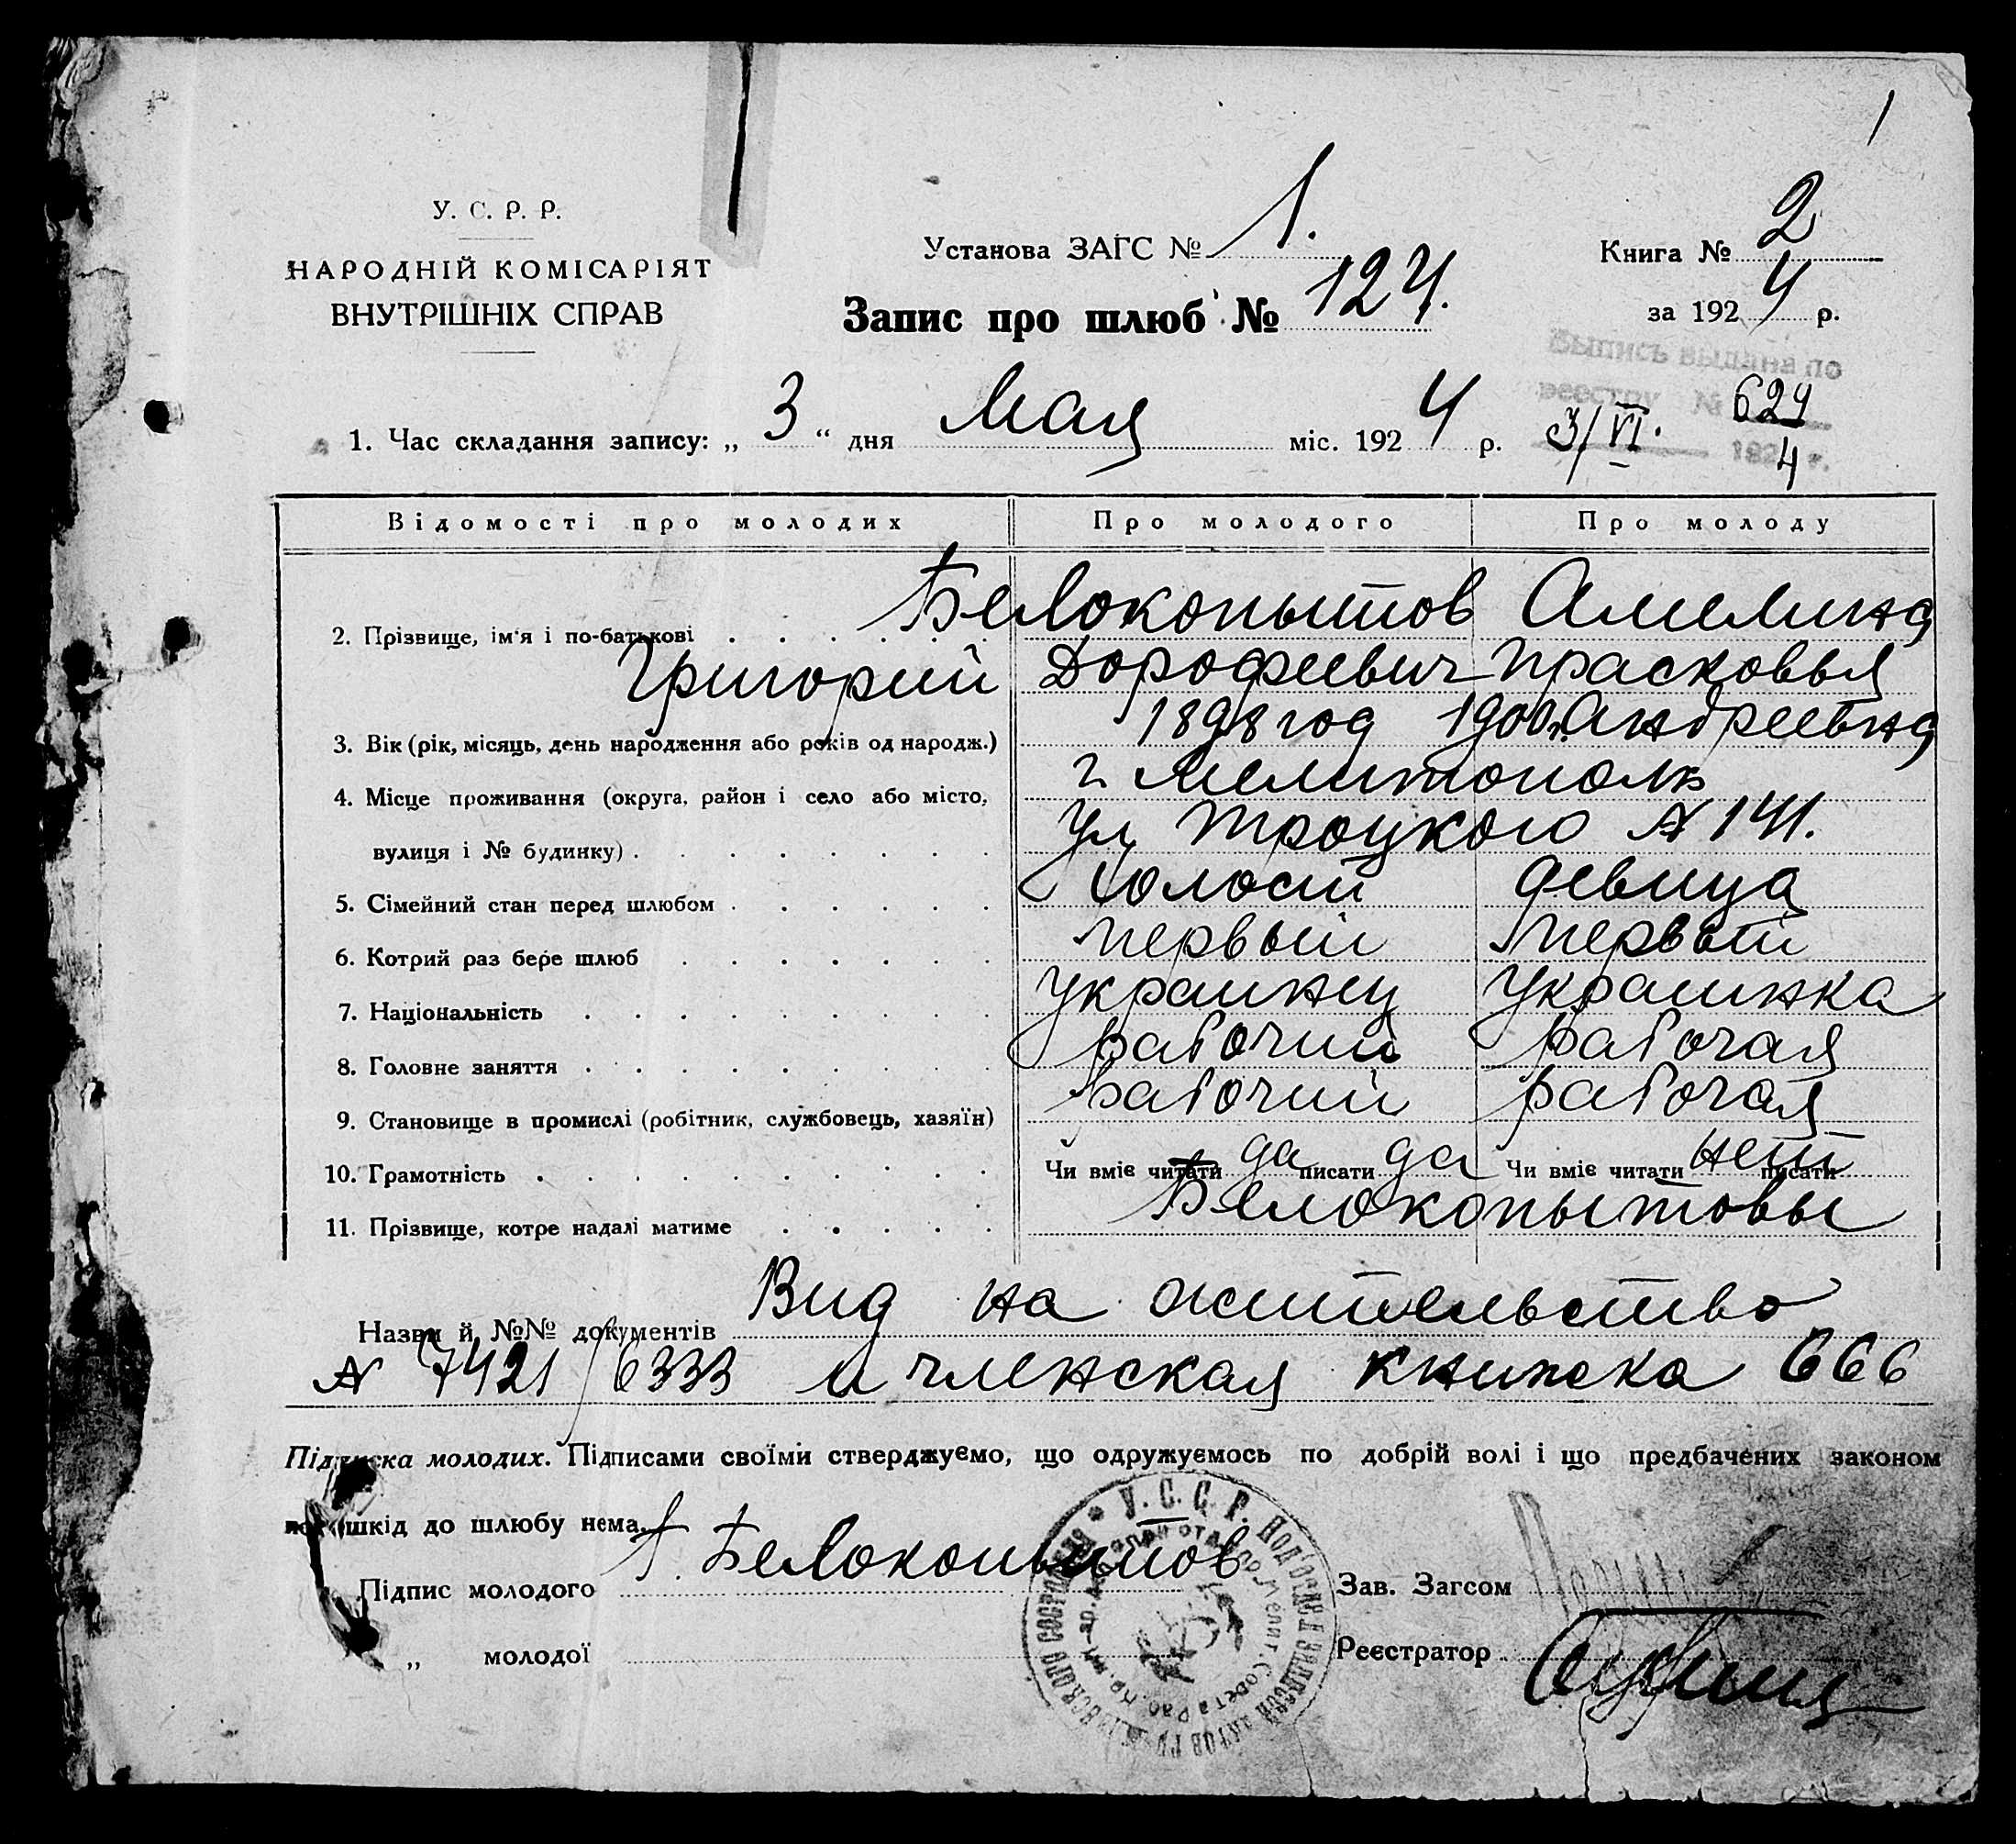 1
У. С. Р. Р.
НАРОДНІЙ КОМІСАРІЯТ
ВНУТРІШНІХ СПРАВ
Установа ЗАГС № 1.
Книга № 2
Запис про шлюб № 124.
за 1924 р.
Выпись выдана по
реестру № 624
3/VI. 1924 г.
1. Час складання запису: „ 3 “ дня Мая міс. 1924 р.
Відомості про молодих Про молодого Про молоду
2. Прізвище, ім'я і по-батькові Белокопытов Амелина
Григорий Дорофеевич Прасковья
Андреевна
3. Вік (рік, місяць, день народження або років од народж.) 1898 год 1900 г.
4. Місце проживання (округа, район і село або місто, г. Мелитополь
вулиця і № будинку) ул Троцкого № 141.
5. Сімейний стан перед шлюбом холост девица
6. Котрий раз бере шлюб первый первый
7. Національність украинец украинка
8. Головне заняття рабочий рабочая
9. Становище в промислі (робітник, службовець, хазяїн) рабочий рабочая
10. Грамотність Чи вміє читати да писати да Чи вміє читати нет писати
11. Прізвище, котре надалі матиме Белокопытовы
Назви й №№ документів Вид на жительство
№ 7421/6333 и членская книжка 666
Підписка молодих. Підписами своїми стверджуємо, що одружуємось по добрій волі і що предбачених законом
перешкід до шлюбу нема.
Підпис молодого Г. Белокопытов
Зав. Загсом
„ молодої
Реєстратор
У. С. С. Р. Под'отдел записей актов гражданского состояния